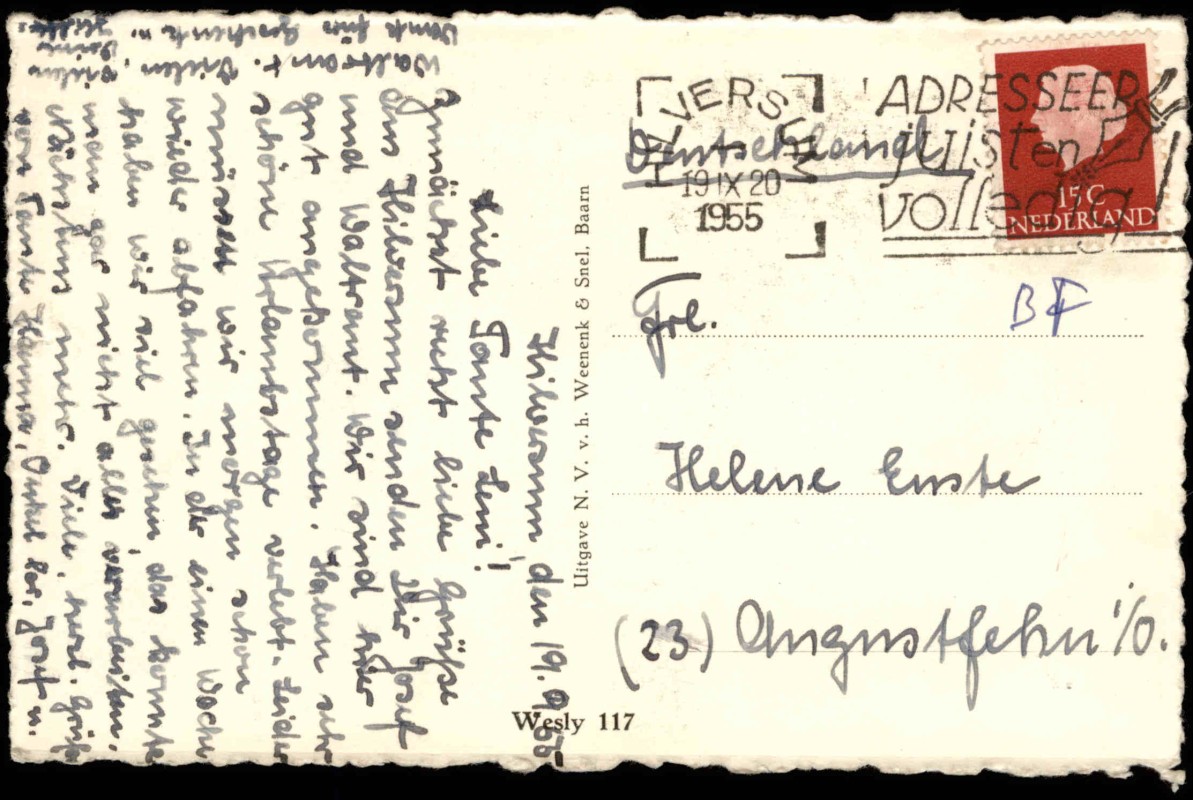 Hilversum, den 19.9.55
Liebe Tante Leni!
Zunächst recht liebe Grüße
aus Hilversum senden Dir Josef
und Waltraut. Wir sind hier
gut angekommen. Haben sehr
schöne Urlaubstage verlebt. Leider
müssen wir morgen schon
wieder abfahren. In der einen Woche
haben wir viel gesehen, das konnte
man gar nicht alles verarbeiten.
Nächstens mehr. Viele herzl. Grüße
von Tante Hanna, Onkel Jos, Josef u.
Waltraut. Vielen, vielen
Dank fürs Geschenk u.
Deine
Uitgave N. V. v. h. Weenenk & Snel, Baarn
Wesly 117
HILVERSUM
19 IX 20
1955
ADRESSEER
juisten
volledig!
15 C
NEDERLAND
Deutschland
Frl.
BF
Helene Enste
(23) Augustfehn i/O.